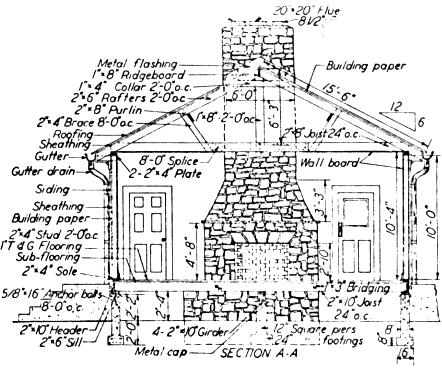 20"×20" Flue
8½"
Metal flashing
1"×8" Ridgeboard
1"×4" Collar 2'-0"o.c.
2"×6" Rafters 2'-0"o.c.
2"×8" Purlin
2"×4" Brace 8'-0"o.c.
Roofing
Sheathing
Gutter
Gutter drain
Siding
Sheathing
Building paper
2"×4" Stud 2'-0"o.c.
1"T & G Flooring
Sub-flooring
2"×4" Sole
5/8"×16" Anchor bolts
8'-0"o.c.
2"×10" Header
2"×6" Sill
Building paper
15'-6"
12
6
6'-0"
6'-3"
1"×8"-2'-0"o.c.
2"×8" Joist 24"o.c.
8'-0" Splice
2-2"×4" Plate
Wall board
4'-8"
10'-4"
10'-0"
3" Bridging
2"×10" Joist
24"o.c.
2'-4"
4-2"×10" Girder
12" Square piers
24" footings
Metal cap
8"
6"
16"
SECTION A-A